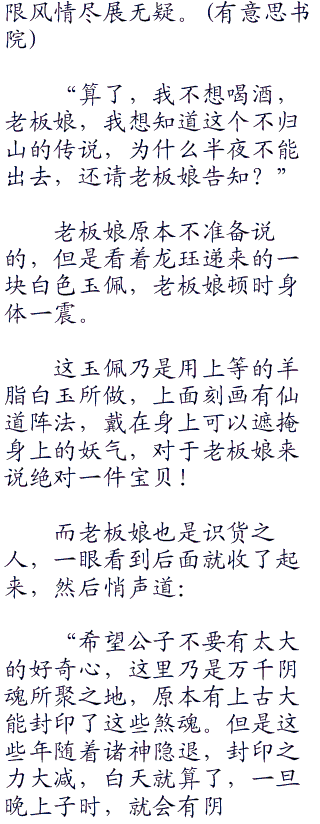 限风情尽展无疑。 (有意思书
院)
“算了，我不想喝酒，
老板娘，我想知道这个不归
山的传说，为什么半夜不能
出去，还请老板娘告知？”
老板娘原本不准备说
的，但是看着龙珏递来的一
块白色玉佩，老板娘顿时身
体一震。
这玉佩乃是用上等的羊
脂白玉所做，上面刻画有仙
道阵法，戴在身上可以遮掩
身上的妖气，对于老板娘来
说绝对一件宝贝！
而老板娘也是识货之
人，一眼看到后面就收了起
来，然后悄声道：
“希望公子不要有太大
的好奇心，这里乃是万千阴
魂所聚之地，原本有上古大
能封印了这些煞魂。但是这
些年随着诸神隐退，封印之
力大减，白天就算了，一旦
晚上子时，就会有阴